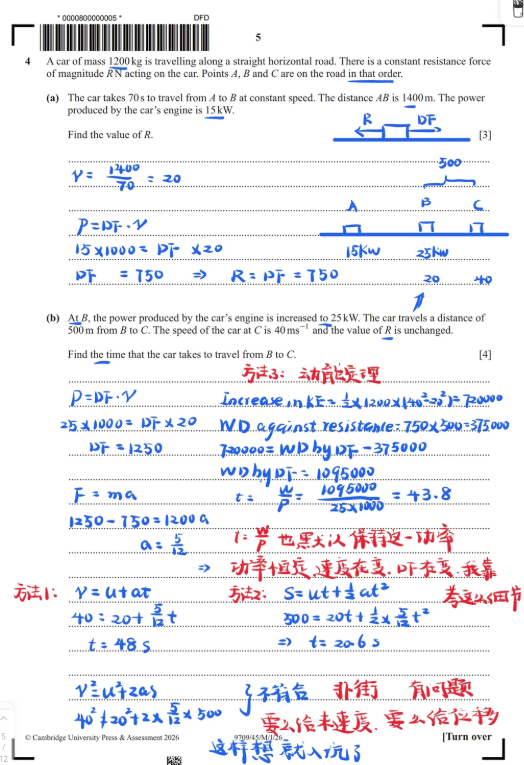 * 0000800000005 *
DFD
5
4 A car of mass 1200 kg is travelling along a straight horizontal road. There is a constant resistance force
of magnitude R N acting on the car. Points A, B and C are on the road in that order.
(a) The car takes 70 s to travel from A to B at constant speed. The distance AB is 1400 m. The power
produced by the car's engine is 15 kW.
R DF
Find the value of R. [3]
500
V = 1400/70 = 20
A B C
P = DF · V
15 × 1000 = DF × 20
15kW 25kW
DF = 750 ⇒ R = DF = 750
20 40
(b) At B, the power produced by the car's engine is increased to 25 kW. The car travels a distance of
500 m from B to C. The speed of the car at C is 40 m s⁻¹ and the value of R is unchanged.
Find the time that the car takes to travel from B to C. [4]
方法3: 动能定理
P = DF · V
Increase in KE = ½ × 1200 × (40² - 20²) = 720000
25 × 1000 = DF × 20
WD against resistance = 750 × 500 = 375000
DF = 1250
720000 = WD by DF - 375000
WD by DF = 1095000
F = ma
t = W/P = 1095000/25×1000 = 43.8
1250 - 750 = 1200 a
a = 5/12
t = W/P 也默认保持这一功率
⇒ 功率恒定, 速度在变, DF在变, 我靠
考这么细节
方法1: V = u + at
40 = 20 + 5/12 t
t = 48 s
方法2: S = ut + ½ at²
500 = 20t + ½ × 5/12 t²
⇒ t = 20.6 s
V² = u² + 2as
40² ≠ 20² + 2 × 5/12 × 500
} 不符合 扑街 有问题
要么给末速度, 要么给位移
这样想就入坑了
© Cambridge University Press & Assessment 2026
9709/45/M/J/26
[Turn over
5
12